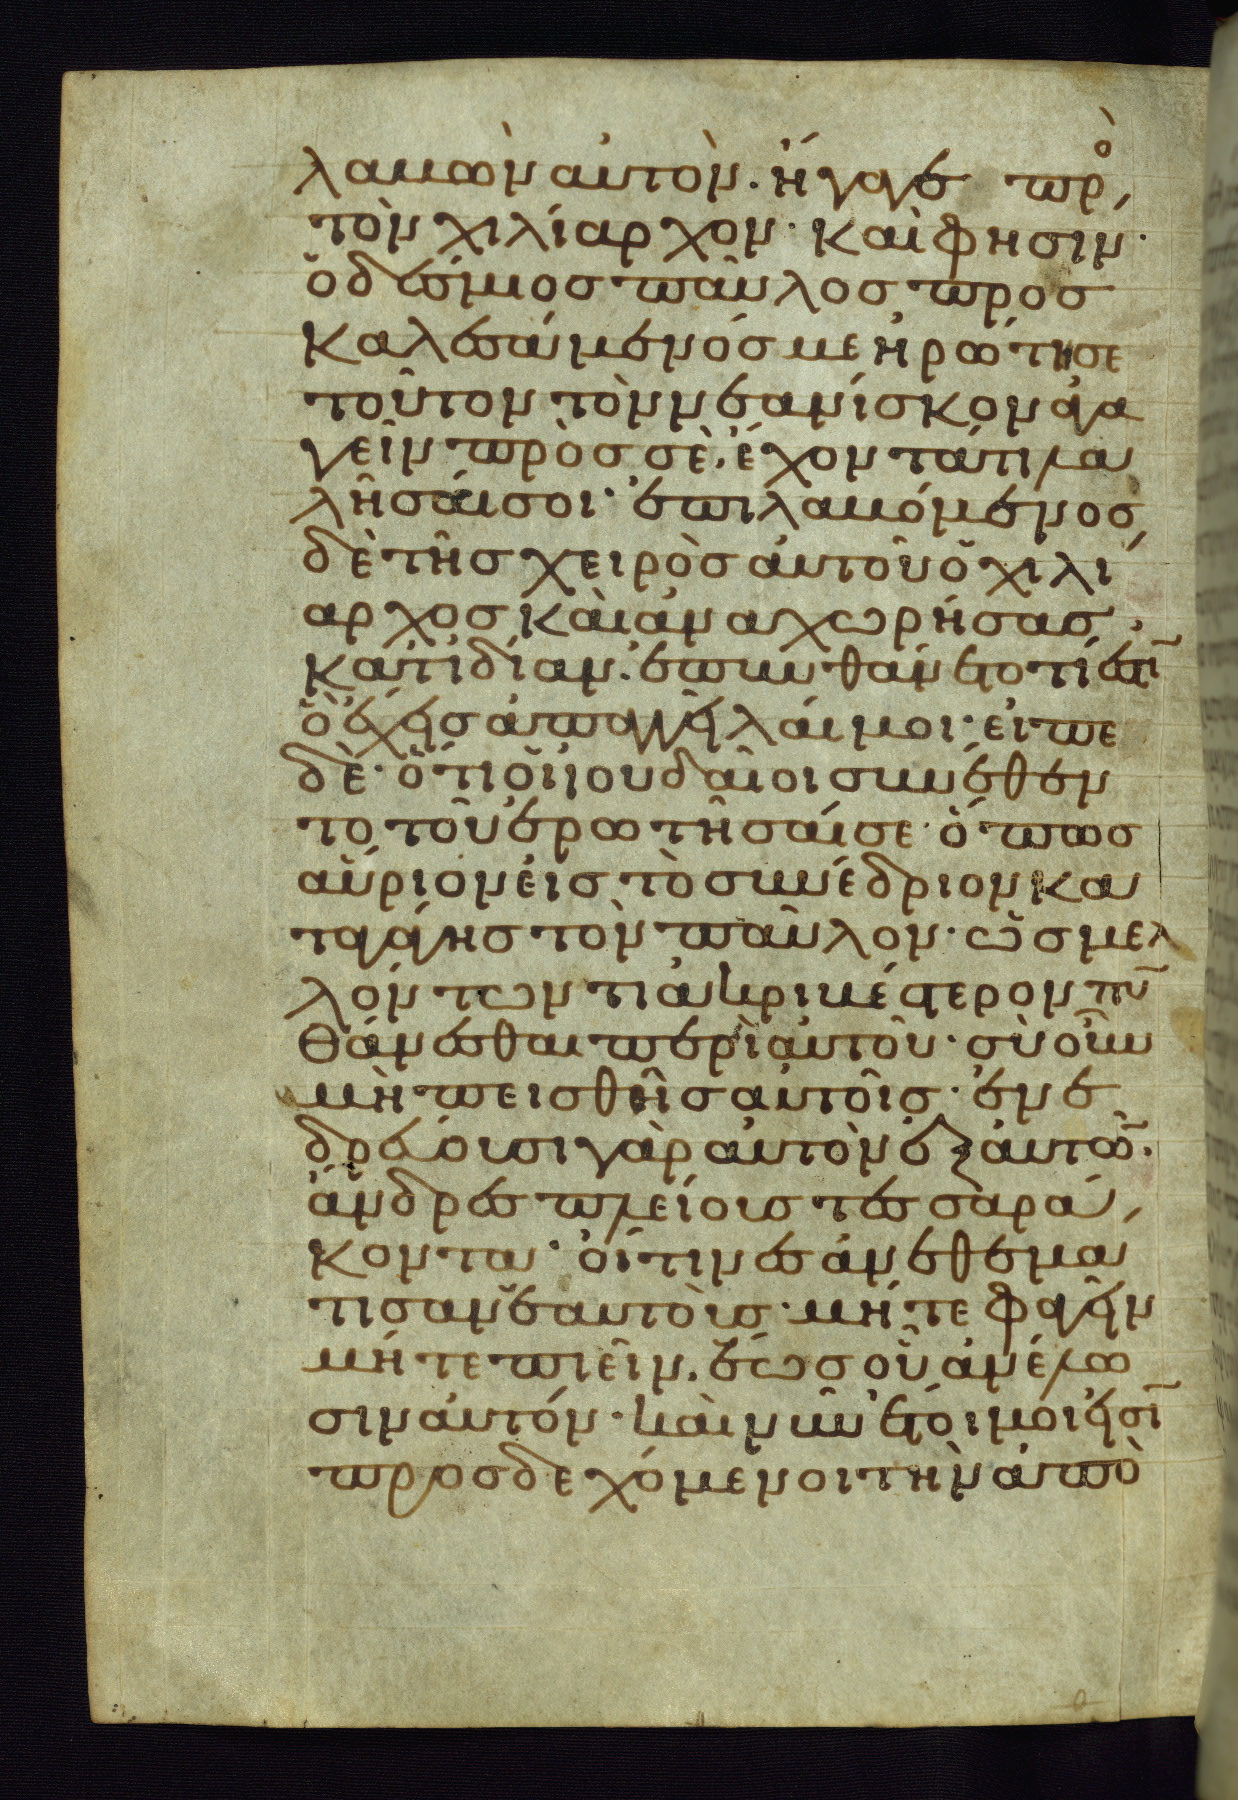 λαβὼν αὐτὸν. ἤγαγε πρὸ,
τὸν χιλίαρχον· καὶ φησιν·
ὁ δέσμιος παῦλος προσ
καλεσάμενός με ἠρώτησε
τοῦτον τὸν νεανίσκον ἀγα
γεῖν πρὸς σὲ, ἔχοντά τι λα
λῆσαί σοι· ἐπιλαβόμενος
δὲ τῆς χειρὸς αὐτοῦ ὁ χιλί
αρχος καὶ ἀναχωρήσας
κατιδίαν. ἐπυνθάνετο τί ἐστῖ
ὃ ἔχεις ἀπαγγεῖλαί μοι· εἶπε
δὲ· ὅτι οἱ ἰουδαῖοι συνέθεν
το τοῦ ἐρωτῆσαί σε· ὅπως
αὔριον εἰς τὸ συνέδριον κα
ταγάγῃς τὸν παῦλον· ὡς μελ
λόντων τι ἀκριβέστερον πυ̅
θάνεσθαι περὶ αὐτοῦ· σὺ οὖν
μὴ πεισθῆις αὐτοῖς· ἐνε
δρεύουσι γὰρ αὐτὸν ἐξ αὐτῶ̅·
ἄνδρες πλείους τεσσαρά,
κοντα· οἵτινες ἀνεθεμά
τισαν ἑαυτοὺς· μήτε φαγεῖν
μήτε πιεῖν. ἕως οὗ ἀνέλω
σιν αὐτόν· καὶ νῦν ἕτοιμοι εἰσῖ
προσδεχόμενοι τὴν ἀπὸ